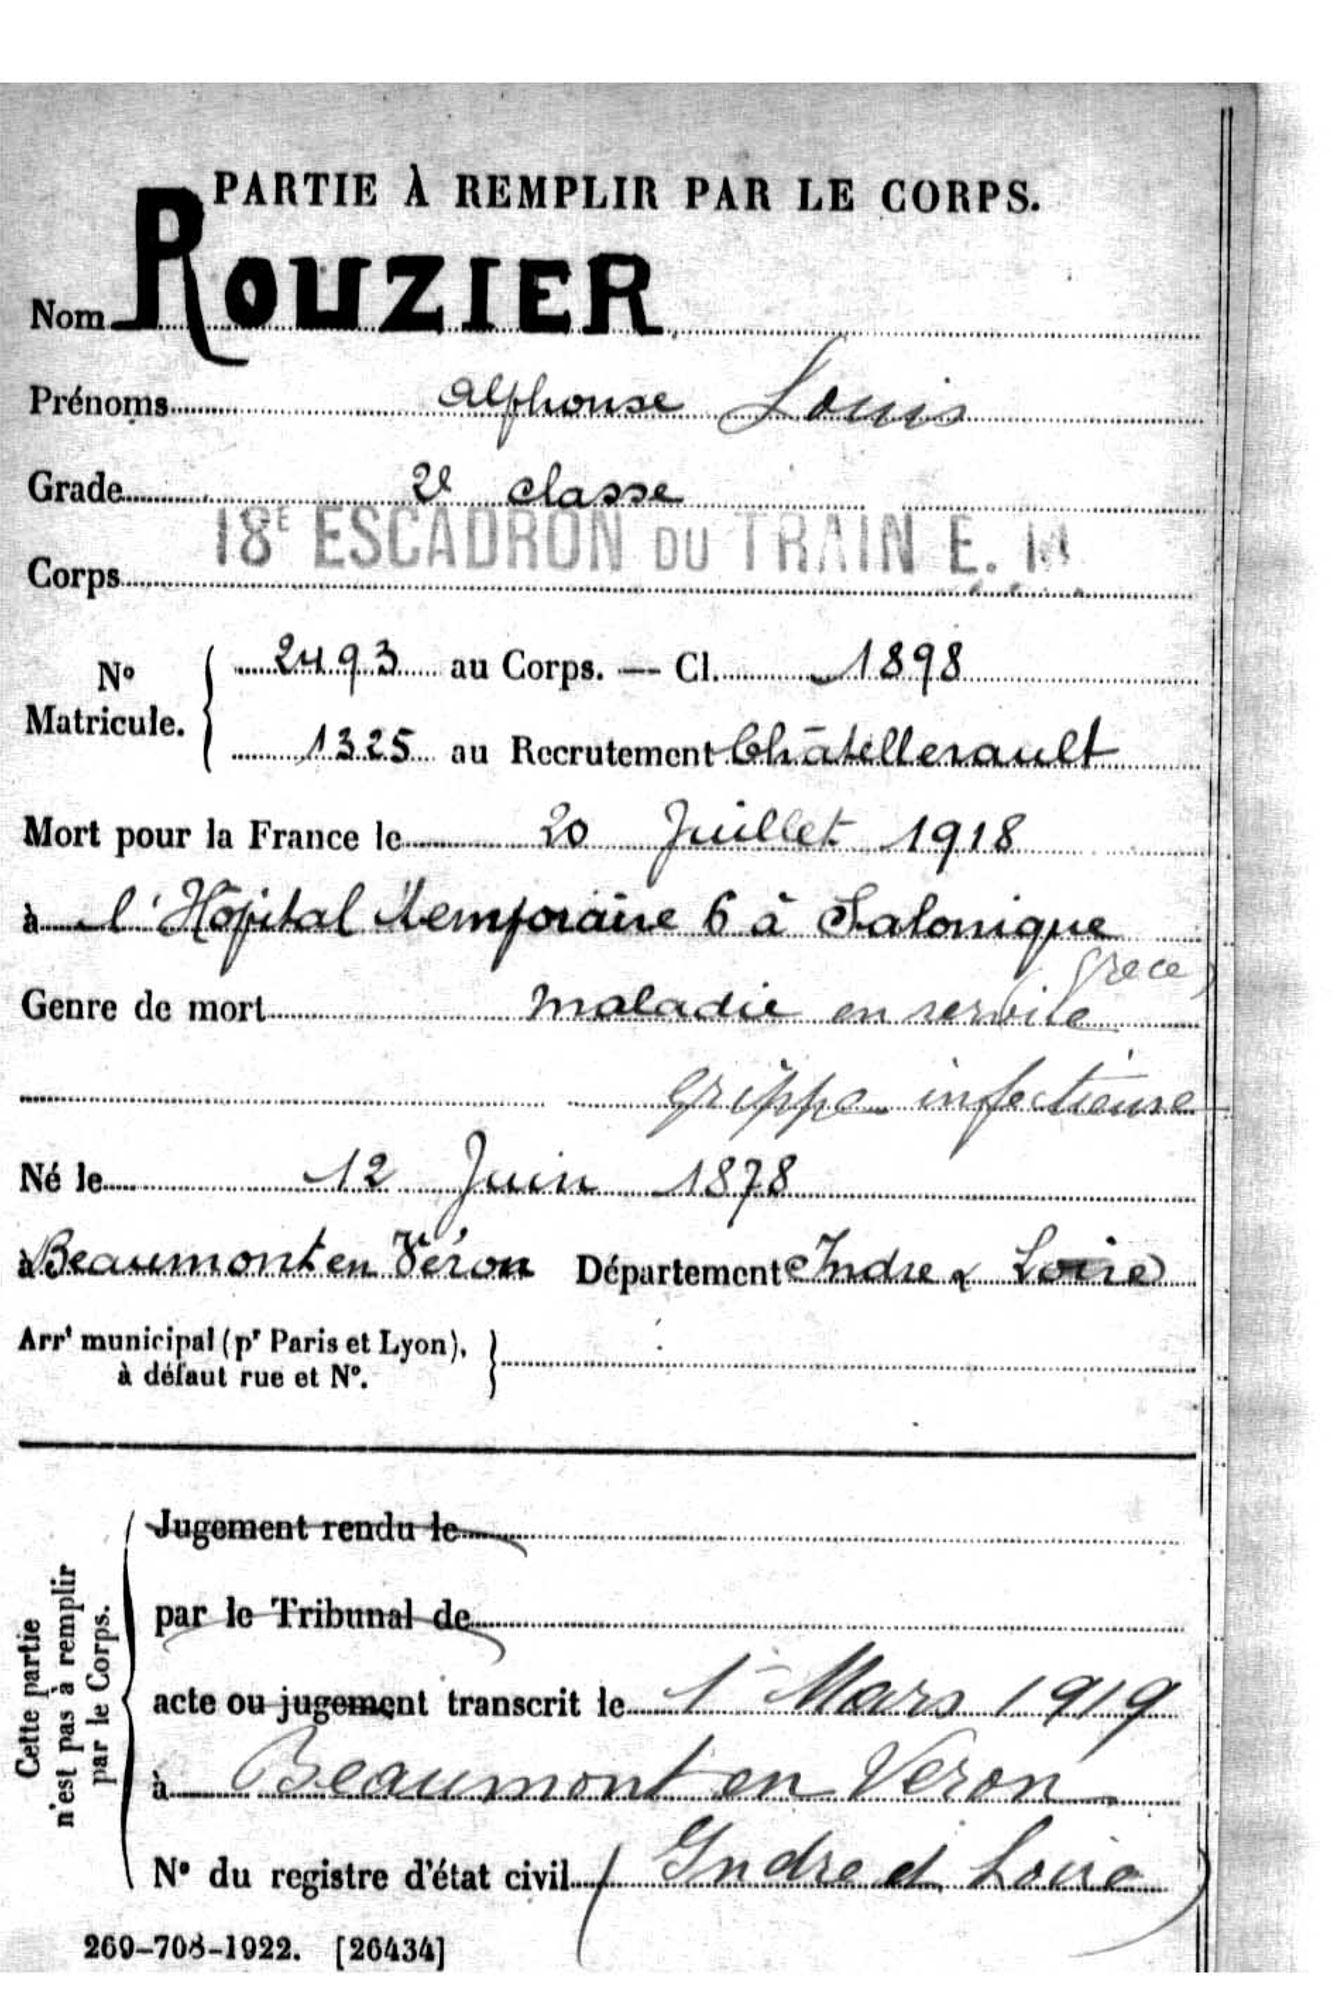 PARTIE À REMPLIR PAR LE CORPS.
Nom ROUZIER
Prénoms Alphonse Louis
Grade 2e classe
Corps 18E ESCADRON DU TRAIN E. M
No Matricule. 2493 au Corps. — Cl. 1898
1325 au Recrutement Châtellerault
Mort pour la France le 20 Juillet 1918
à l'Hôpital temporaire 6 à Salonique
(Grece)
Genre de mort maladie en service
grippe infectieuse
Né le 12 Juin 1878
à Beaumont en Véron Département Indre & Loire
Arrt municipal (pr Paris et Lyon),
à défaut rue et No.
Cette partie
n'est pas à remplir
par le Corps.
Jugement rendu le
par le Tribunal de
acte ou jugement transcrit le 1 Mars 1919
à Beaumont en Veron
No du registre d'état civil (Indre et Loire)
269-708-1922. [26434]